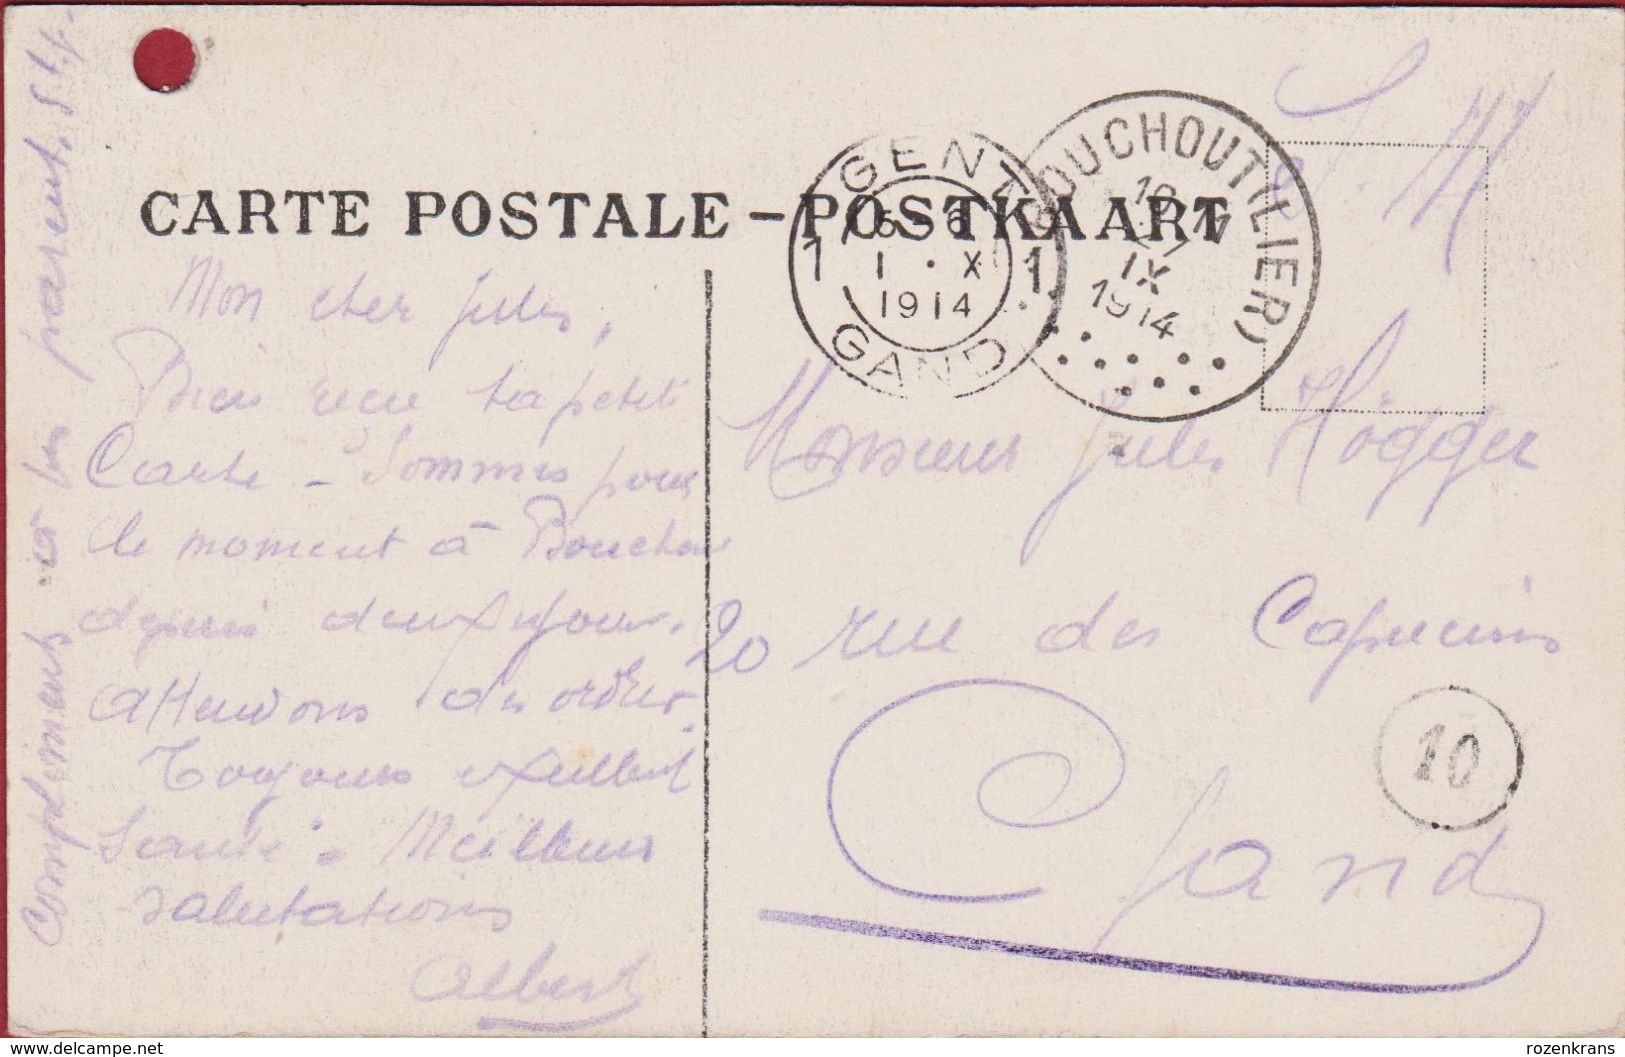 CARTE POSTALE – POSTKAART
GENT
1 5-6 1
1 · X
1914
GAND
BOUCHOUT (LIER)
IX
1914
S. M
Mon cher Jules,
Bien reçu ta petit
Carte – Sommes pour
le moment à Bouchou
depuis deux jours.
Attendons des ordres.
Toujours excellent
Santé. Meilleurs
salutations
Albert
Compliments à tes parents S.t.p.
Monsieur Jules Högger
20 rue des Capucins
Gand
10
www.delcampe.net
rozenkrans